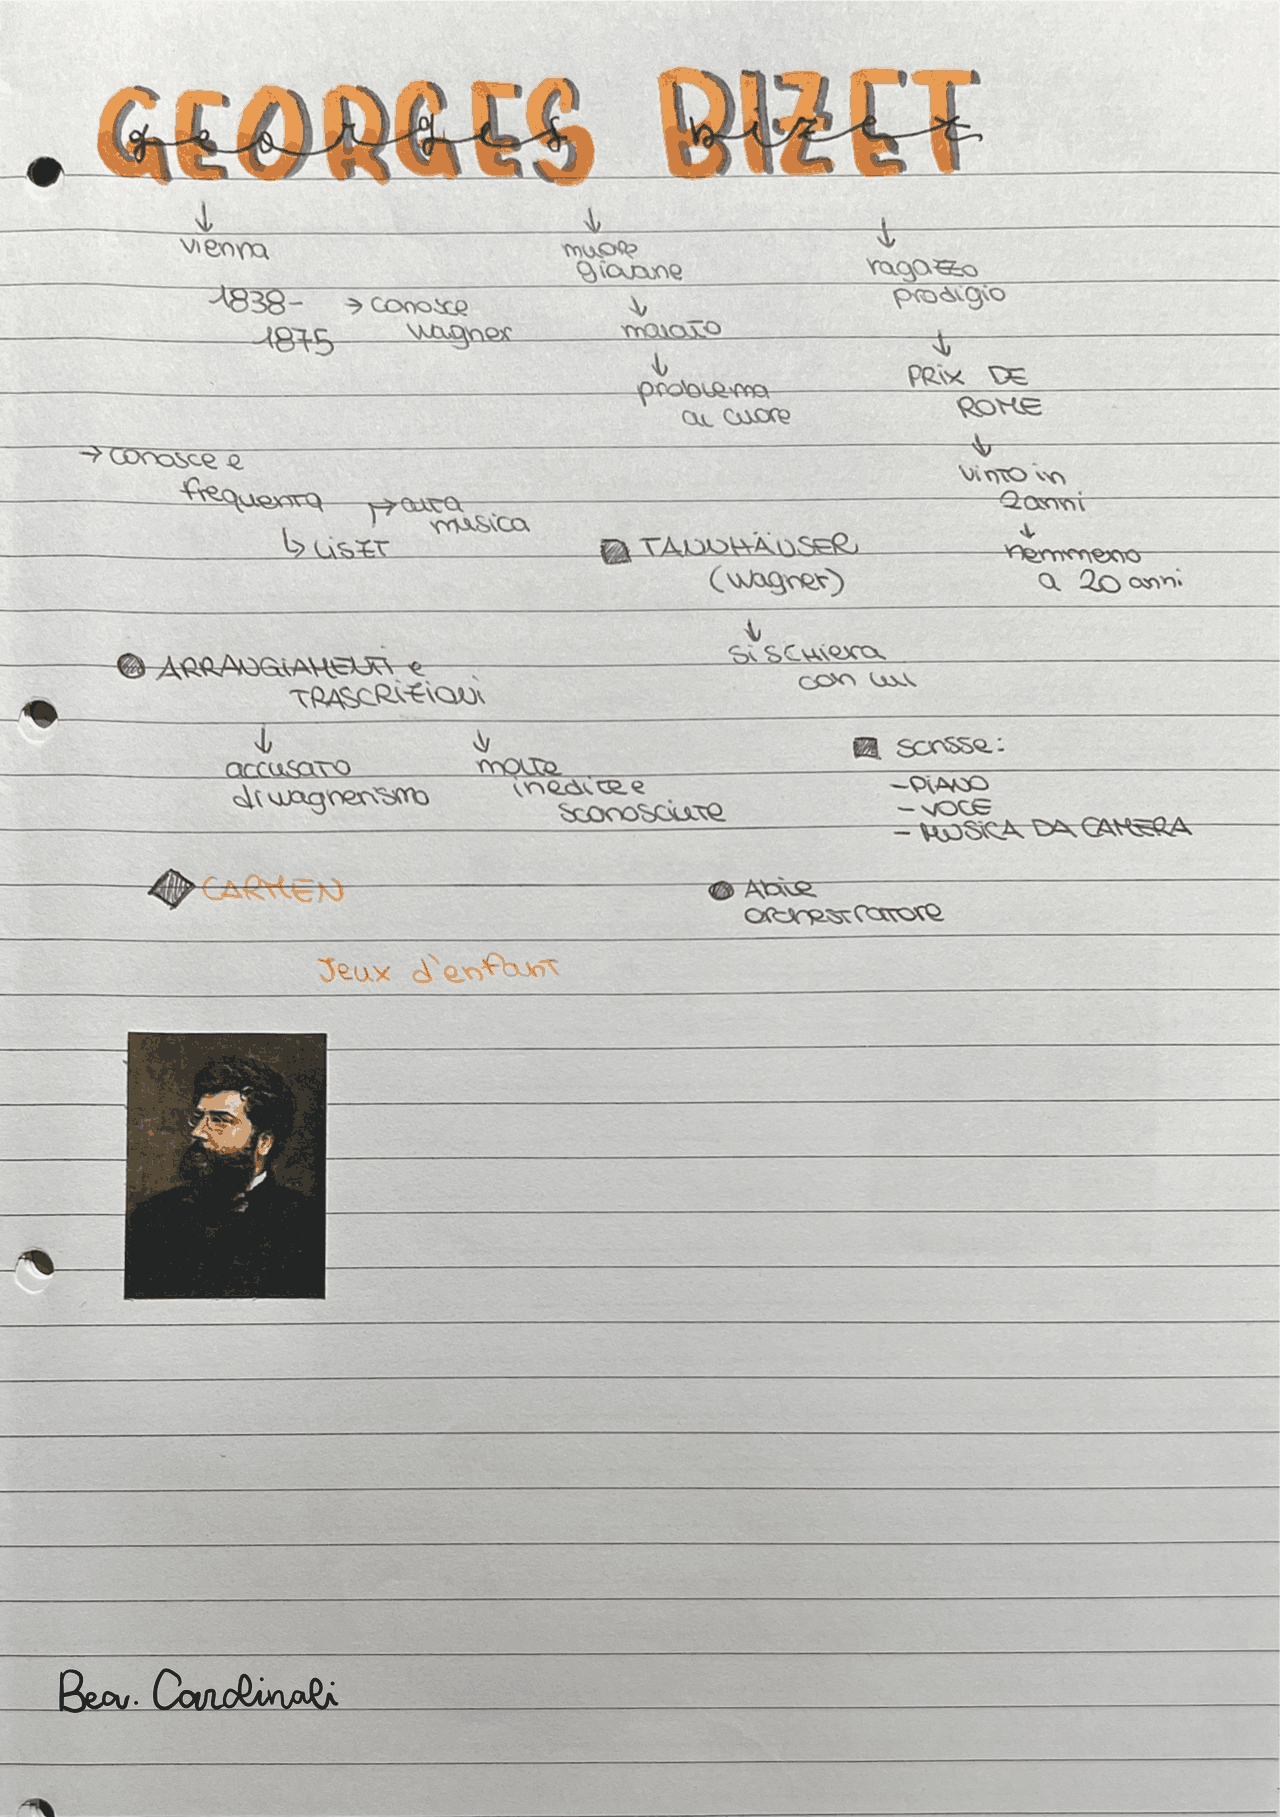 GEORGES BIZET
georges bizet
↓
vienna
1838-
1875
→ conosce
wagner
↓
muore
giovane
↓
malato
↓
problema
al cuore
↓
ragazzo
prodigio
↓
PRIX DE
ROME
↓
vinto in
2 anni
↓
nemmeno
a 20 anni
→ conosce e
frequenta
↳ LISZT
↱ alta
musica
TANNHÄUSER
(wagner)
↓
si schiera
con lui
ARRANGIAMENTI e
TRASCRIZIONI
↓
accusato
di wagnerismo
↓
molte
inedite e
sconosciute
scrisse:
- PIANO
- VOCE
- MUSICA DA CAMERA
CARMEN
Abile
orchestratore
Jeux d'enfant
Bea. Cardinali